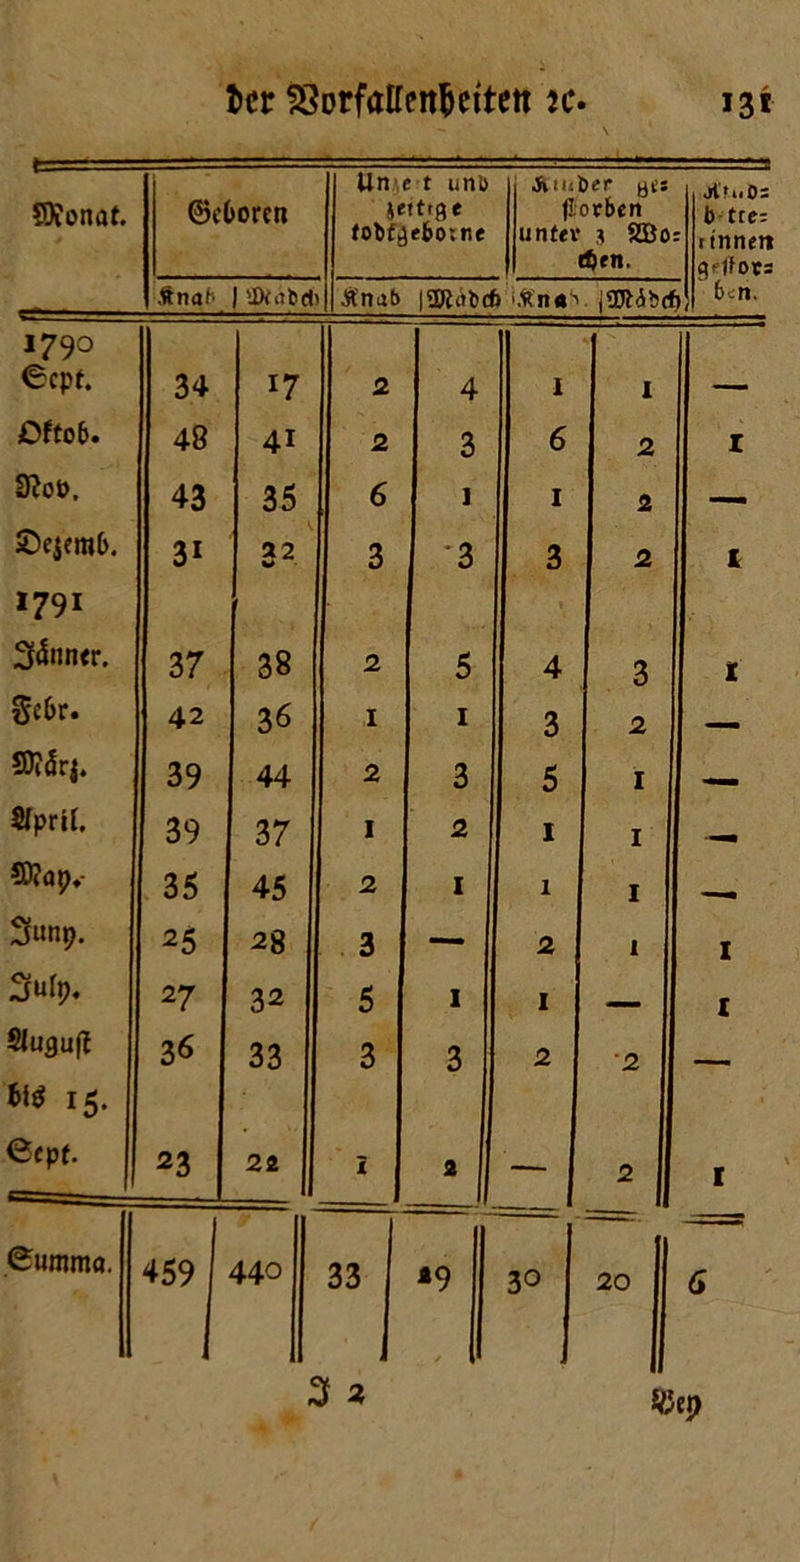 der Vorfallenheiten ꝛc. 131
Monat. | Geboren | Unzeit und zeitige todtgeborne | Kinder gestorben unter 3 Wochen. | Kindbetterinnen gestorben.
Knab | Mädch | Knab | Mädch | Knab. | Mädch
1790
Sept. | 34 | 17 | 2 | 4 | 1 | 1 | —
Oktob. | 48 | 41 | 2 | 3 | 6 | 2 | 1
Nov. | 43 | 35 | 6 | 1 | 1 | 2 | —
Dezemb. | 31 | 32 | 3 | 3 | 3 | 2 | 1
1791
Jänner. | 37 | 38 | 2 | 5 | 4 | 3 | 1
Febr. | 42 | 36 | 1 | 1 | 3 | 2 | —
März. | 39 | 44 | 2 | 3 | 5 | 1 | —
April. | 39 | 37 | 1 | 2 | 1 | 1 | —
May. | 35 | 45 | 2 | 1 | 1 | 1 | —
Juny. | 25 | 28 | 3 | — | 2 | 1 | 1
July. | 27 | 32 | 5 | 1 | 1 | — | 1
August | 36 | 33 | 3 | 3 | 2 | 2 | —
bis 15.
Sept. | 23 | 22 | 1 | 2 | — | 2 | 1
Summa. | 459 | 440 | 33 | 29 | 30 | 20 | 6
J 2 Bey